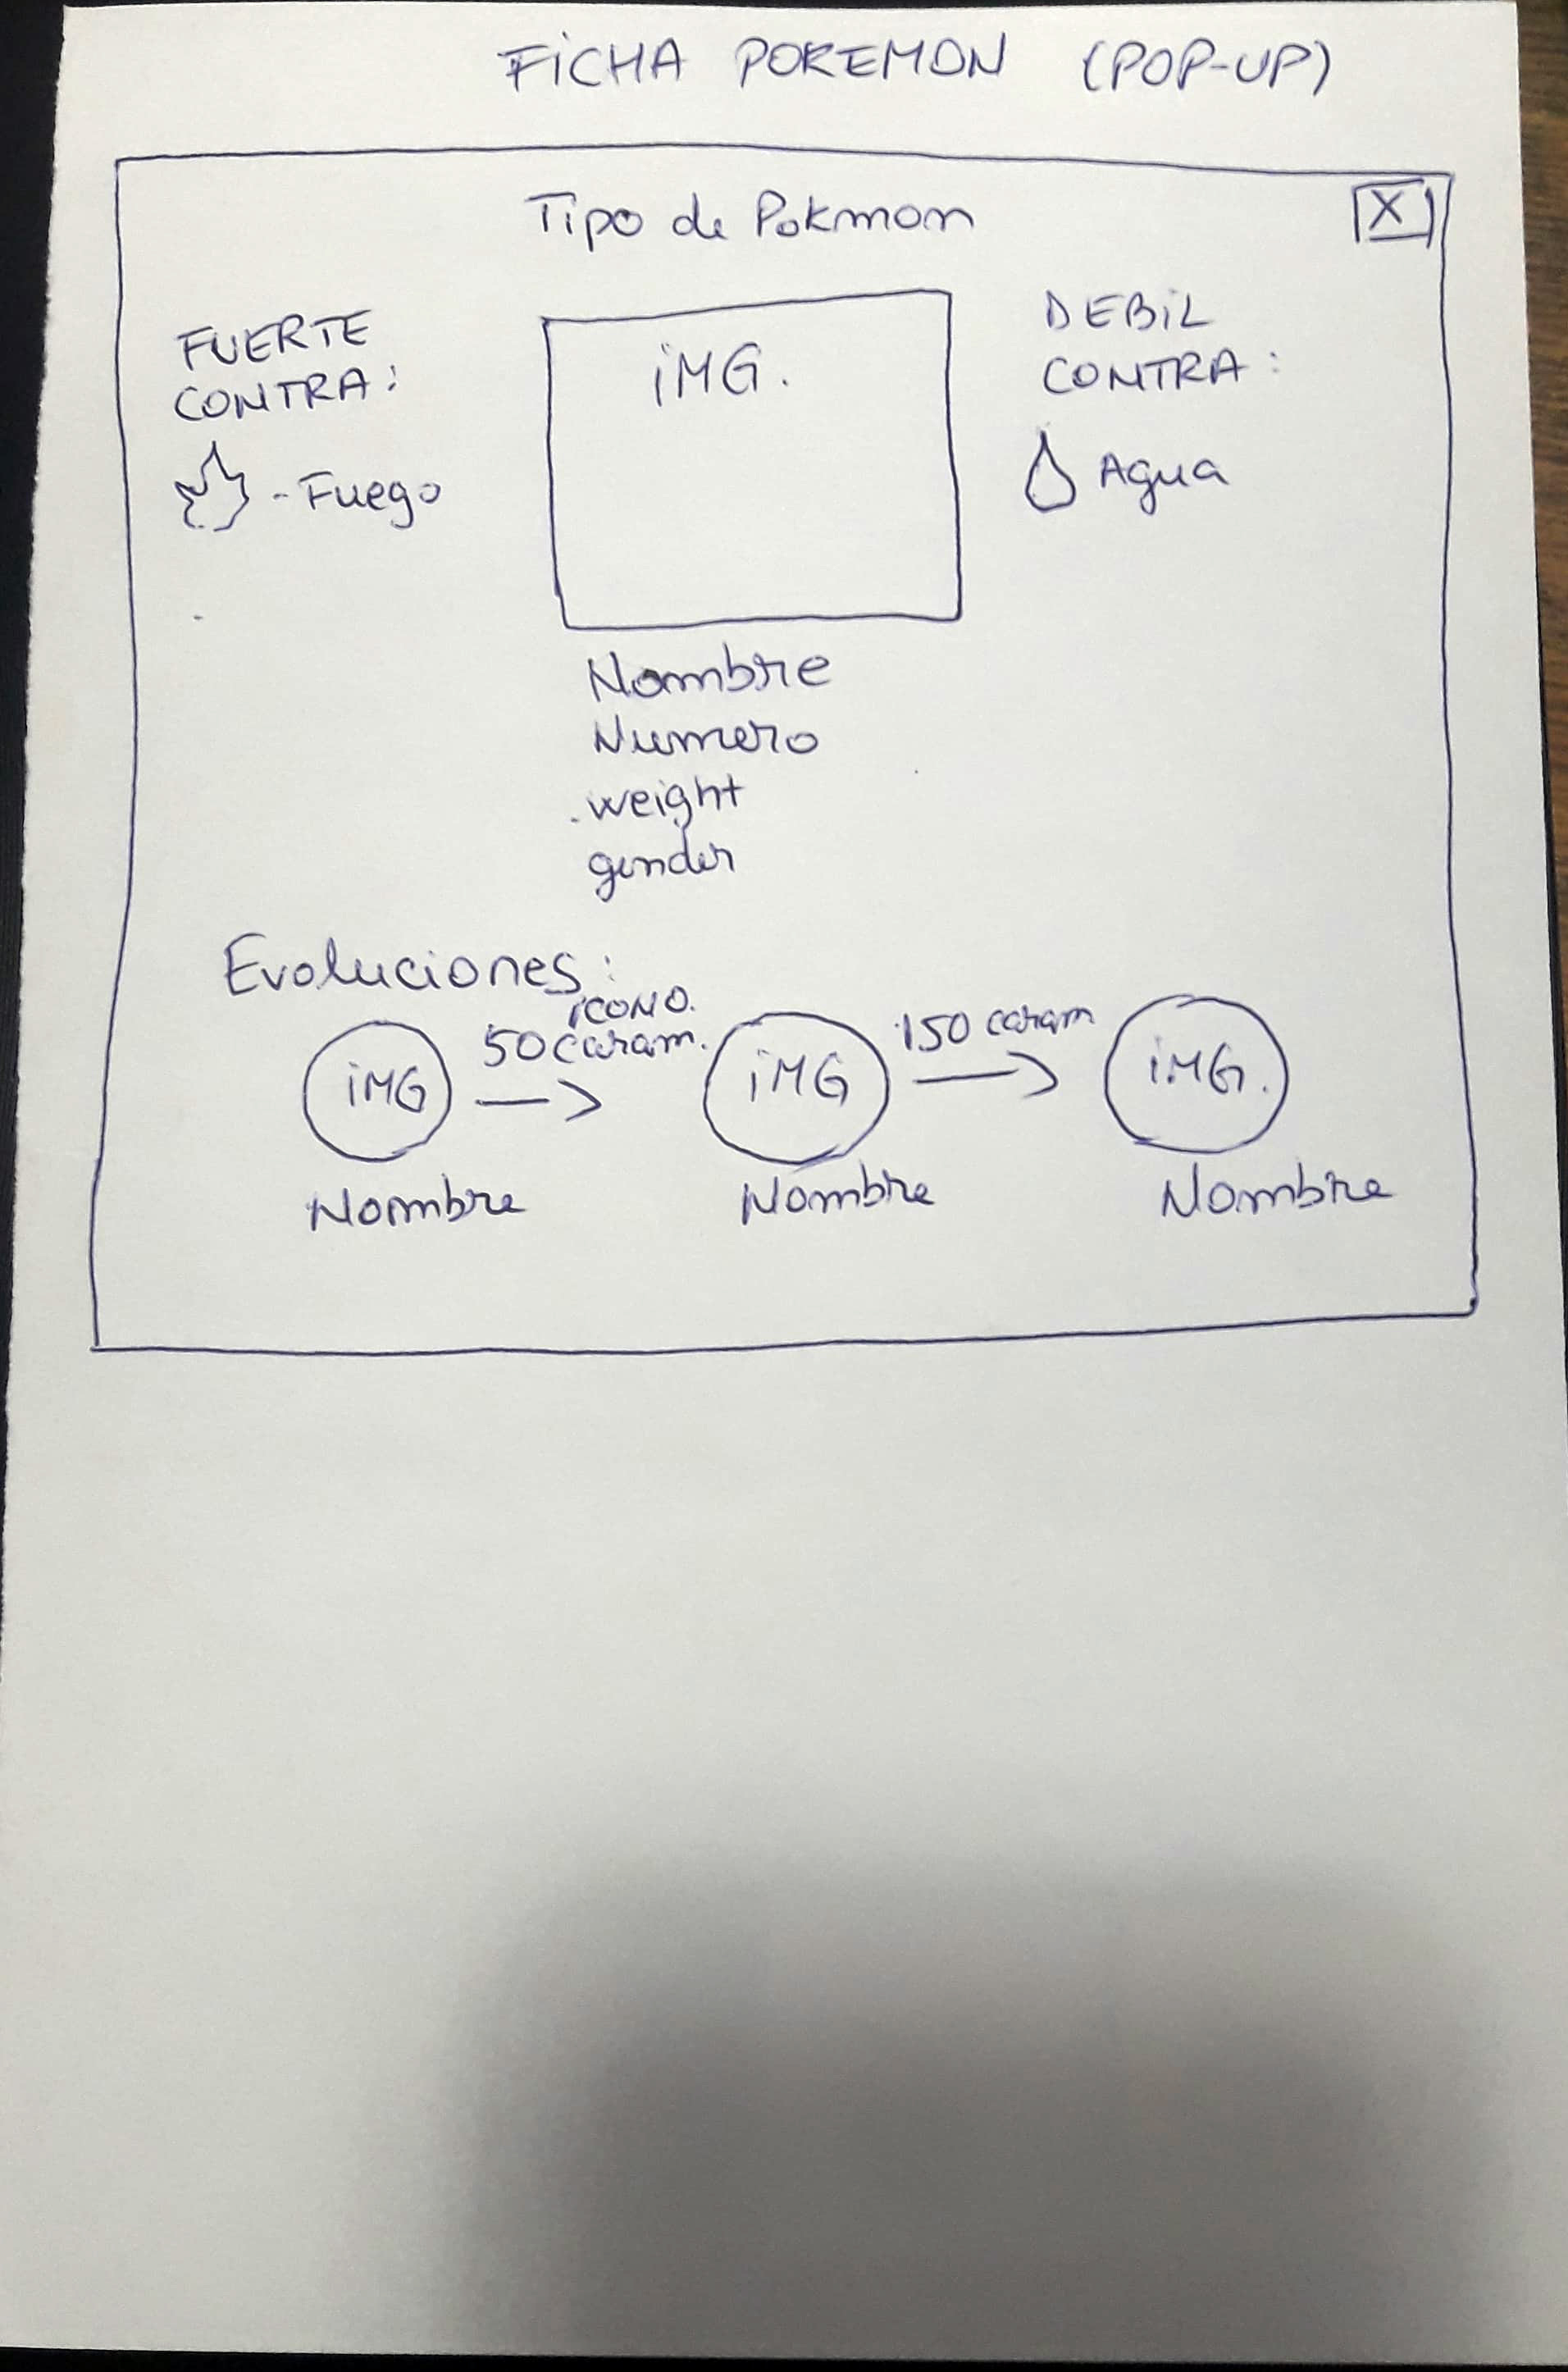 FICHA POKEMON (POP-UP)
Tipo de Pokmon
X
FUERTE
CONTRA:
- Fuego
IMG.
DEBIL
CONTRA:
Agua
Nombre
Numero
weight
gender
Evoluciones:
ICONO.
50 caram.
150 caram
IMG
IMG
IMG.
Nombre
Nombre
Nombre